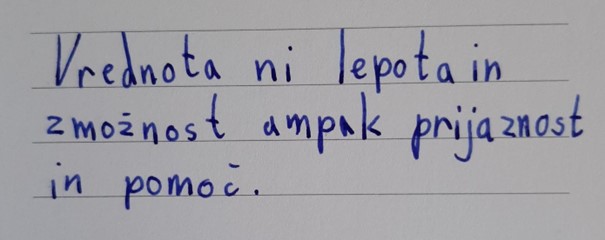 Vrednota ni lepota in
zmožnost ampak prijaznost
in pomoč.